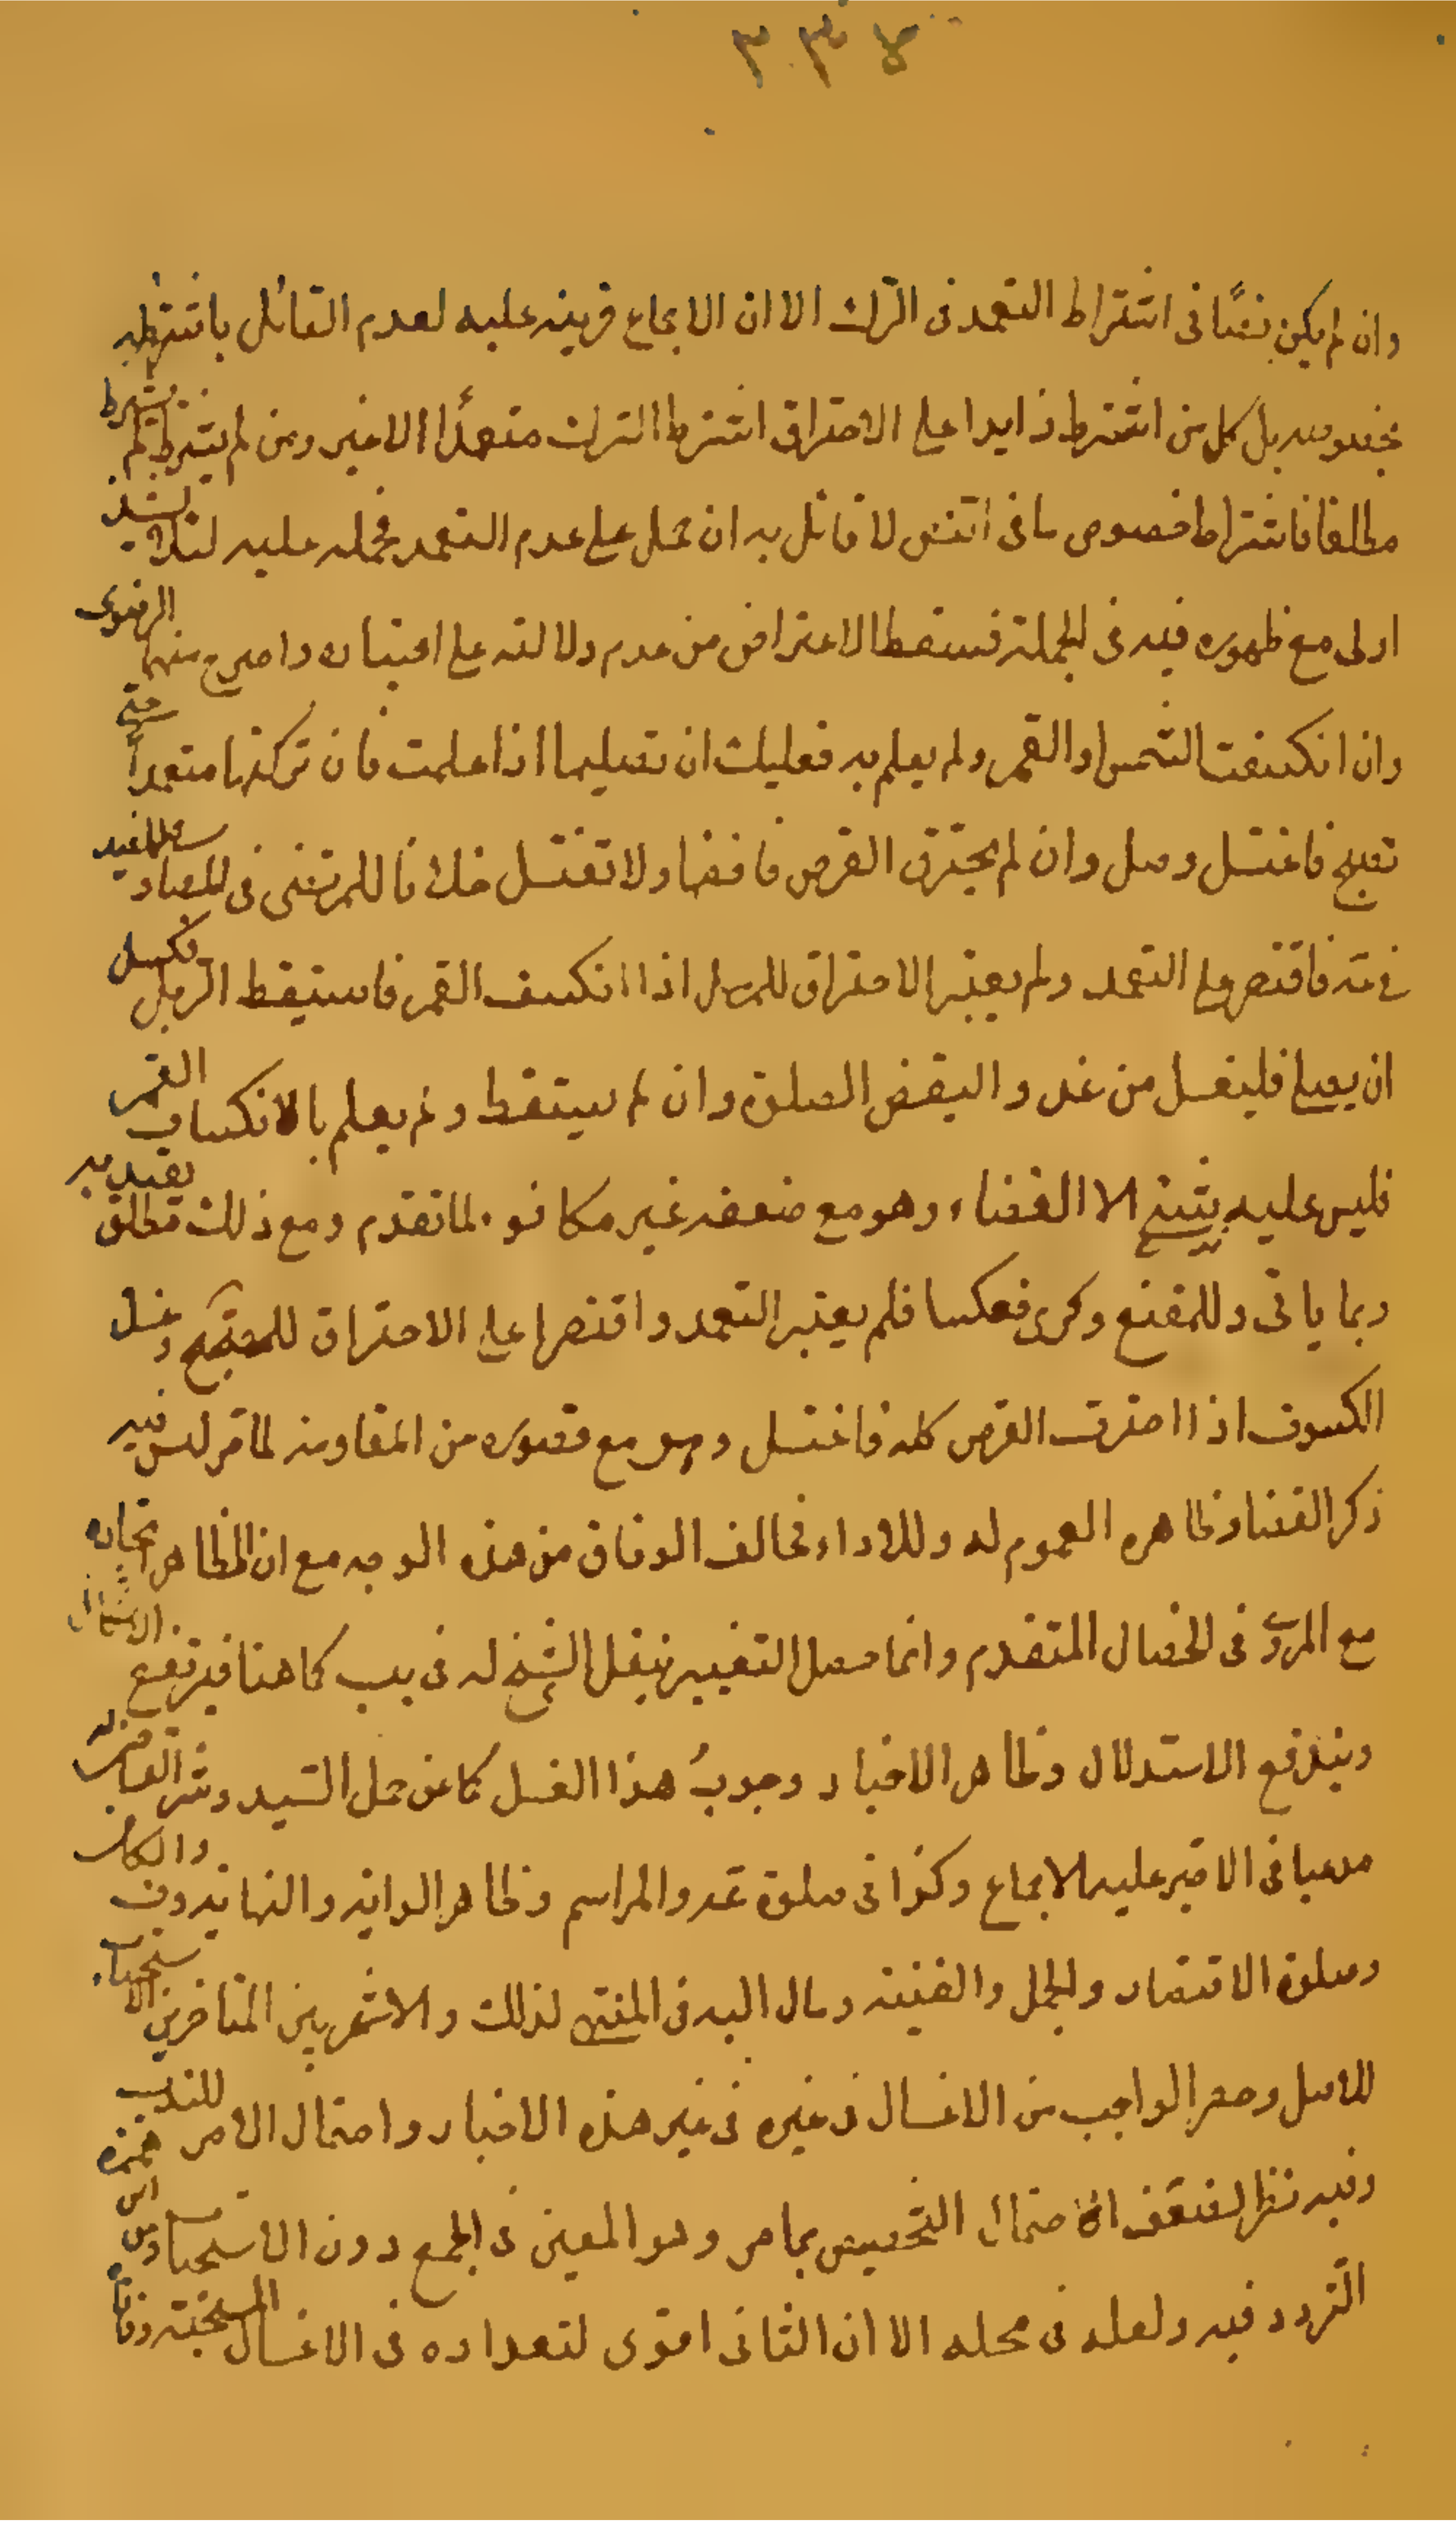 وان لم يكن نصًّا فى اشتراط التعمد فى الترك الا ان الاجماع قرينه عليه لعدم القائل باشتراطه
بخصوصه بل كل من اشترط زايدا على الاحتراق اشترط الترك متعمدًا الاغير ومن لم يشترط لم يشترط
مطلقا فاشتراط خصوص ما فى النص لا قائل به ان حمل على عدم التعمد فحمله عليه لئلا يشذ
اولى مع ظهوره فيه فى الجملة فسقط الاعتراض من عدم دلالته على اعتباره واصرح منهما الرضوى
وان انكسفت الشمس او القمر ولم يعلم به فعليك ان تصليها اذا علمت فان تركتها متعمدا حتى
تصبح فاغتسل وصل وان لم يحترق القرص فاقضها ولا تغتسل خلافا للمرتضى فى المصباح والمفيد
فى عة فاقتصر على التعمد ولم يعتبر الاحتراق للمرسل اذا انكسف القمر فاستيقظ الرجل فكسل
ان يصلى فليغسل من غد واليقض الصلوة وان لم يستيقظ ولم يعلم بالانكساف القمر
فليس عليه شئ الا القضاء وهو مع ضعفه غير مكافو لما تقدم ومع ذلك مطلق يقيد به
وبما ياتى وللمقنع وكرى فعكسا فلم يعتبر التعمد واقتصرا على الاحتراق للصحيح وغسل
الكسوف اذا احترق القرص كله فاغتسل وهو مع قصوره من المقاومه لما مر ليس فيه
ذكر القضا وظاهره العموم له وللاداء فخالف الوفاق من هذه الوجه مع ان الظاهر اتحاده
مع المروى فى الخصال المتقدم وانما حصل التغيير بنقل الشيخ له فى يب كما هنا فيرتفع الاشكال
ويندفع الاستدلال وظاهر الاخبار وجوبُ هذا الغسل كما عن جمل السيد وشرح القاضى له
مدعيا فى الاخير عليه الاجماع وكذا فى صلوة عه والمراسم وظاهر الهدايه والنهايه وف والكافى
وصلوة الاقتصاد والجمل والغنيه ومال اليه فى المنتهى لذلك والاشهر بين المتاخرين الاستحباب
للاصل وحصر الواجب من الاغسال فى غيره فى غير هذه الاخبار واحتمال الامر للندب
وفيه نظر لضعف الاحتمال التخصيص بما مر وهو المعين فى الجمع دون الاستحباب
التردد فيه ولعله فى محله الا ان الثانى اقوى لتعداده فى الاغسال المستحبة وفاقا